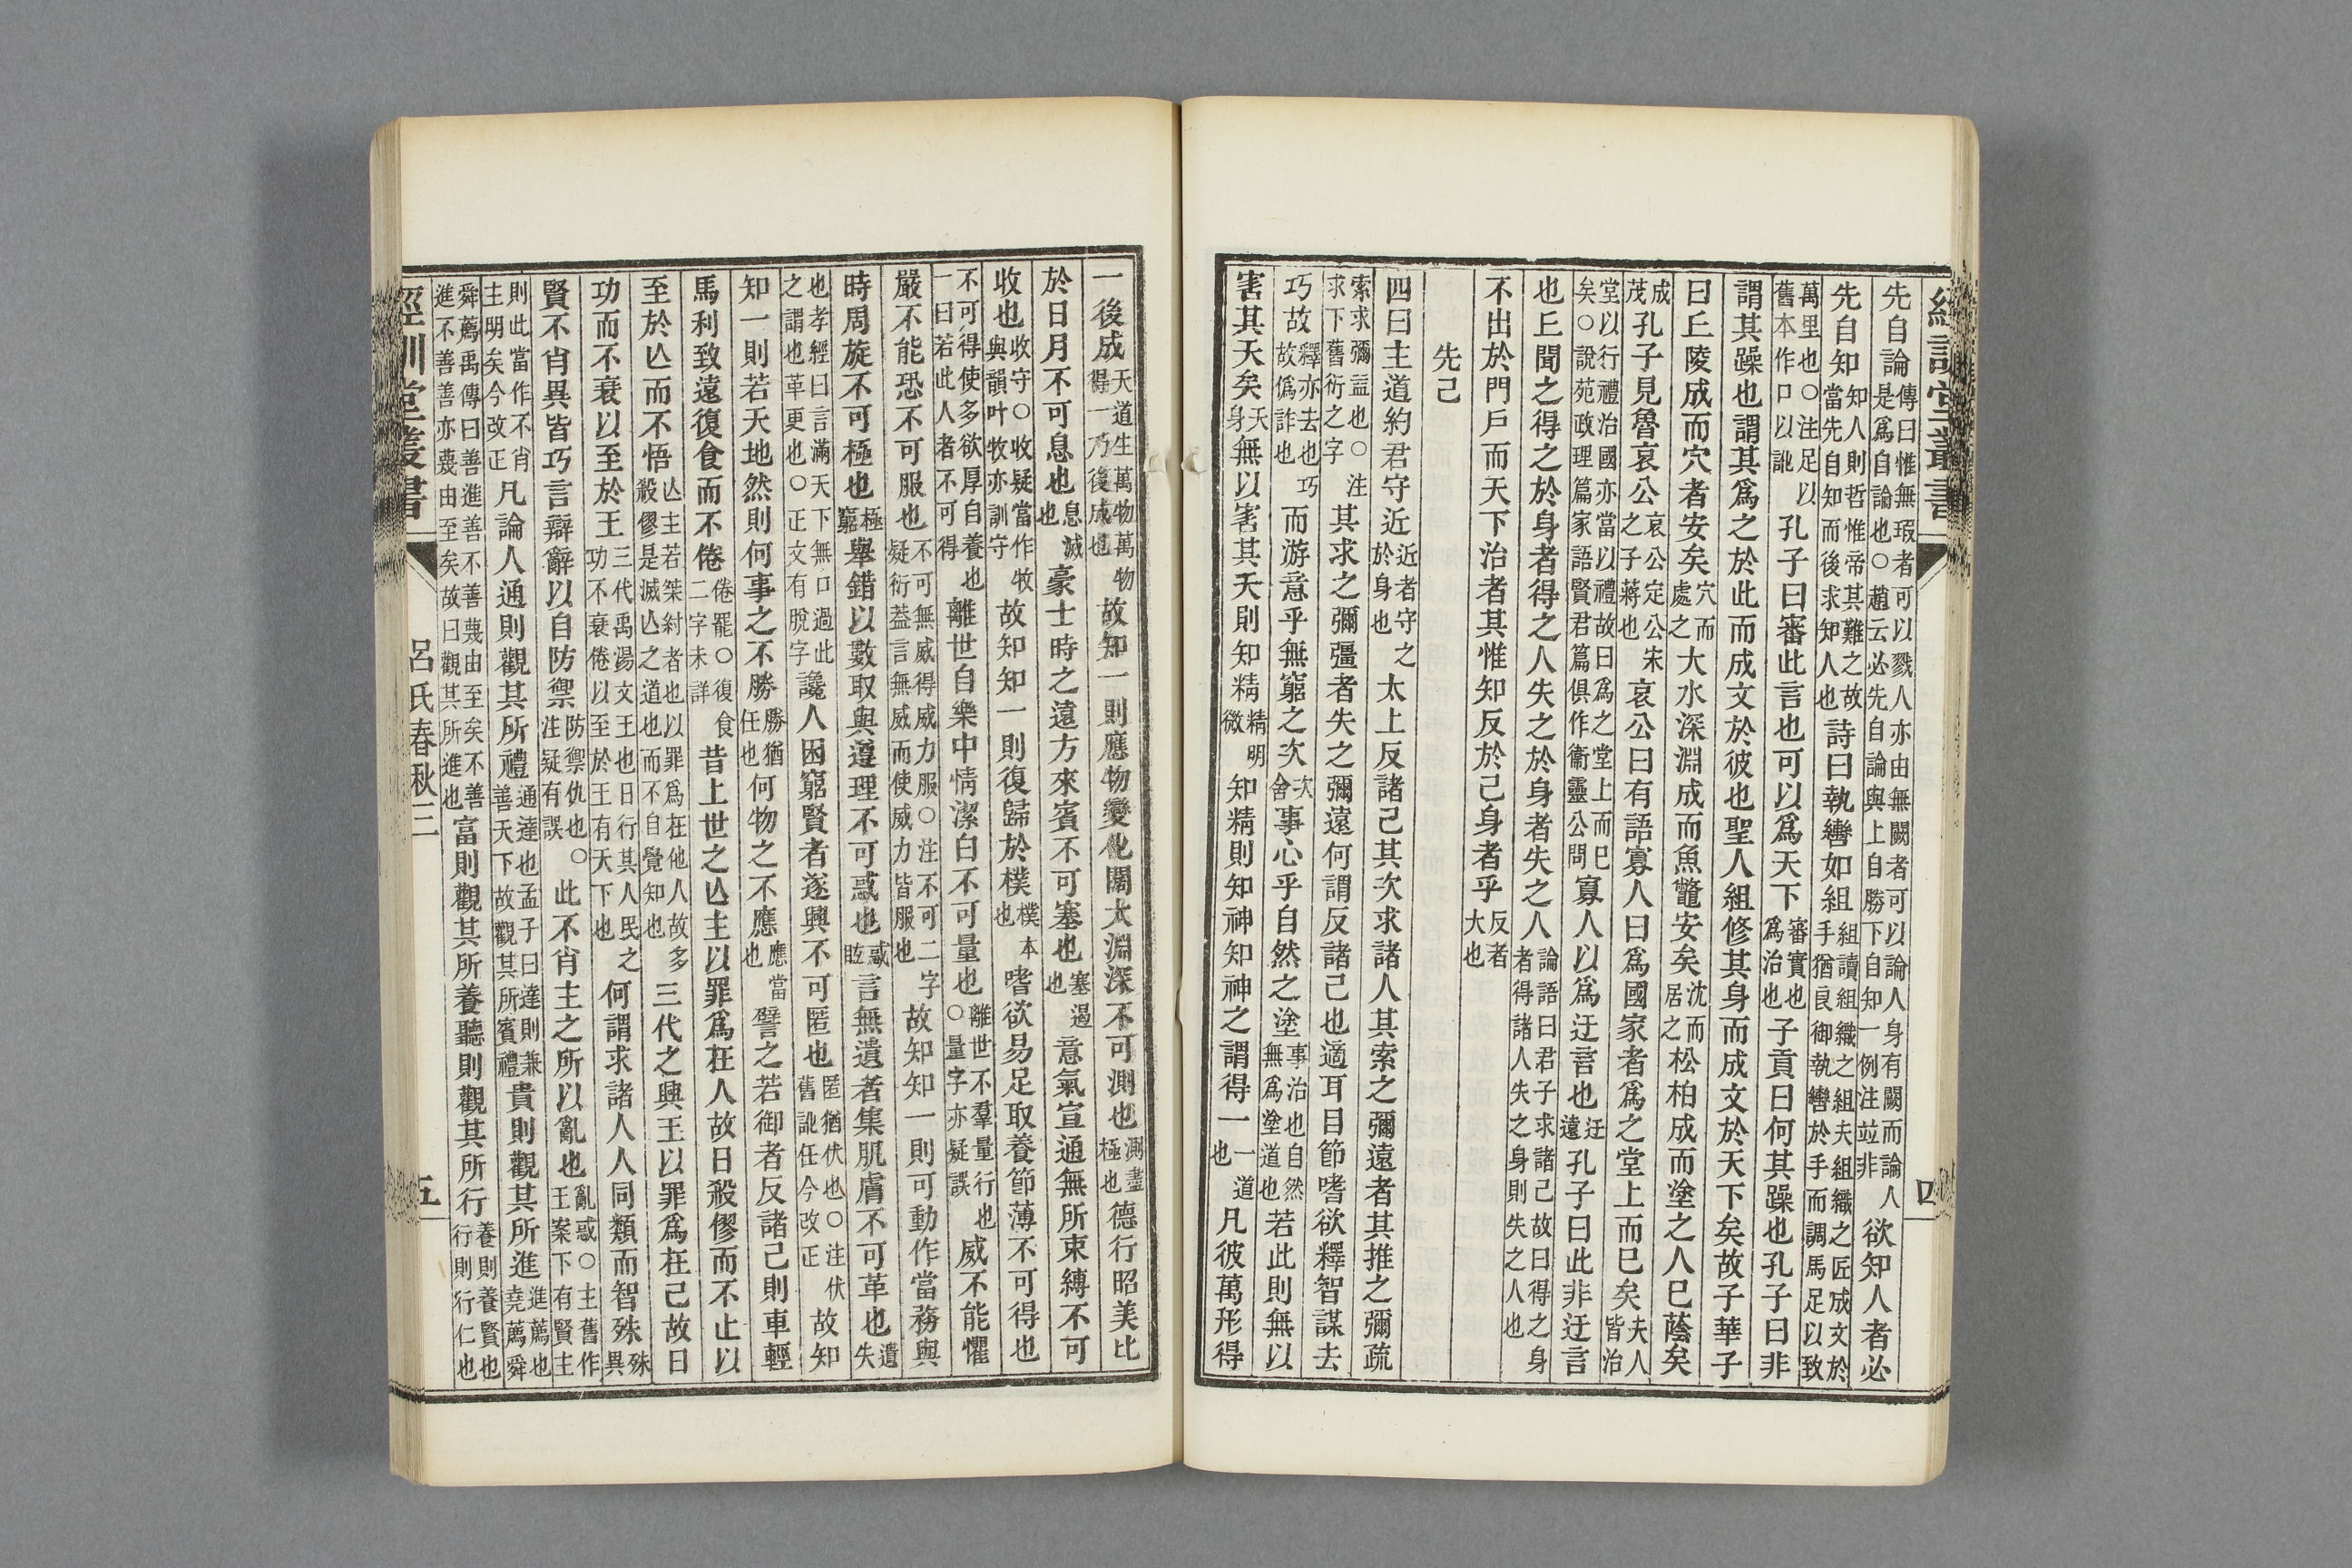 經訓堂叢書 四
先自論傳曰惟無瑕者可以戮人亦由無闕者可以論人身有闕而論人是爲自論也○趙云必先自論與上自勝下自知一例注竝非欲知人者必
先自知知人則哲惟帝其難之故當先自知而後求知人也詩曰執轡如組組讀組織之組夫組織之匠成文於手猶良御執轡於手而調馬足以致
萬里也○注足以舊本作口以訛孔子曰審此言也可以爲天下審實也爲治也子貢曰何其躁也孔子曰非
謂其躁也謂其爲之於此而成文於彼也聖人組修其身而成文於天下矣故子華子
曰丘陵成而穴者安矣穴而處之大水深淵成而魚鼈安矣沈而居之松柏成而塗之人已蔭矣
成茂孔子見魯哀公哀公定公宋之子蔣也哀公曰有語寡人曰爲國家者爲之堂上而已矣夫人皆治
堂以行禮治國亦當以禮故曰爲之堂上而已矣○說苑政理篇家語賢君篇俱作衞靈公問寡人以爲迂言也迂遠孔子曰此非迂言
也丘聞之得之於身者得之人失之於身者失之人論語曰君子求諸己故曰得之身者得諸人失之身則失之人也
不出於門戶而天下治者其惟知反於己身者乎反者大也
先己
四曰主道約君守近近者守之於身也太上反諸己其次求諸人其索之彌遠者其推之彌疏
索求彌益也○注求下舊衍之字其求之彌彊者失之彌遠何謂反諸己也適耳目節嗜欲釋智謀去
巧故釋亦去也巧故僞詐也而游意乎無窮之次次舍事心乎自然之塗事治也自然無爲塗道也若此則無以
害其天矣天身無以害其天則知精精明微知精則知神知神之謂得一一道也凡彼萬形得
一後成天道生萬物萬物得一乃後成也故知一則應物變化闊大淵深不可測也測盡極也德行昭美比
於日月不可息也息滅也豪士時之遠方來賓不可塞也塞遏也意氣宣通無所束縛不可
收也收守○收疑當作牧與韻叶牧亦訓守故知知一則復歸於樸樸本也嗜欲易足取養節薄不可得也
不可得使多欲厚自養也一曰若此人者不可得離世自樂中情潔白不可量也離世不羣量行也○量字亦疑誤威不能懼
嚴不能恐不可服也不可無威得威力服○注不可二字疑衍蓋言無威而使威力皆服也故知知一則可動作當務與
時周旋不可極也極窮舉錯以數取與遵理不可惑也惑眩言無遺者集肌膚不可革也遺失
也孝經曰言滿天下無口過此之謂也革更也○正文有脫字讒人困窮賢者遂興不可匿也匿猶伏也○注伏舊訛任今改正故知
知一則若天地然則何事之不勝勝猶任也何物之不應應當也譬之若御者反諸己則車輕
馬利致遠復食而不倦倦罷○復食二字未詳昔上世之亾主以罪爲在人故日殺僇而不止以
至於亾而不悟亾主若桀紂者也以罪爲在他人故多殺僇是滅亾之道也而不自覺知也三代之興王以罪爲在己故日
功而不衰以至於王三代禹湯文王也日行其人民之功不衰倦以至於王有天下也何謂求諸人人同類而智殊殊異
賢不肖異皆巧言辯辭以自防禦防禦仇也○注疑有誤此不肖主之所以亂也亂惑○主舊作王案下有賢主
則此當作不肖主明矣今改正凡論人通則觀其所禮通達也孟子曰達則兼善天下故觀其所賓禮貴則觀其所進進薦也堯薦舜
舜薦禹傳曰善進善不善蔑由至矣不善進不善善亦蔑由至矣故曰觀其所進也富則觀其所養聽則觀其所行養則養賢也行則行仁也
經訓堂叢書 呂氏春秋三 五